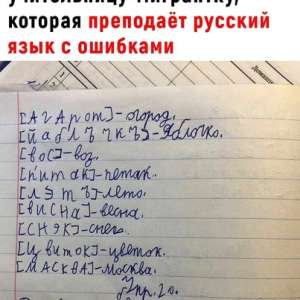 учительницу-мигрантку,
которая преподаёт русский
язык с ошибками
[АгАрот]-огород.
[йаблъчкъ]-яблочко.
[вос]-воз.
[питак]-пятак.
[лэтъ]-лето.
[висна]-весна.
[снэк]-снег.
[цвиток]-цветок.
[масква]-москва.